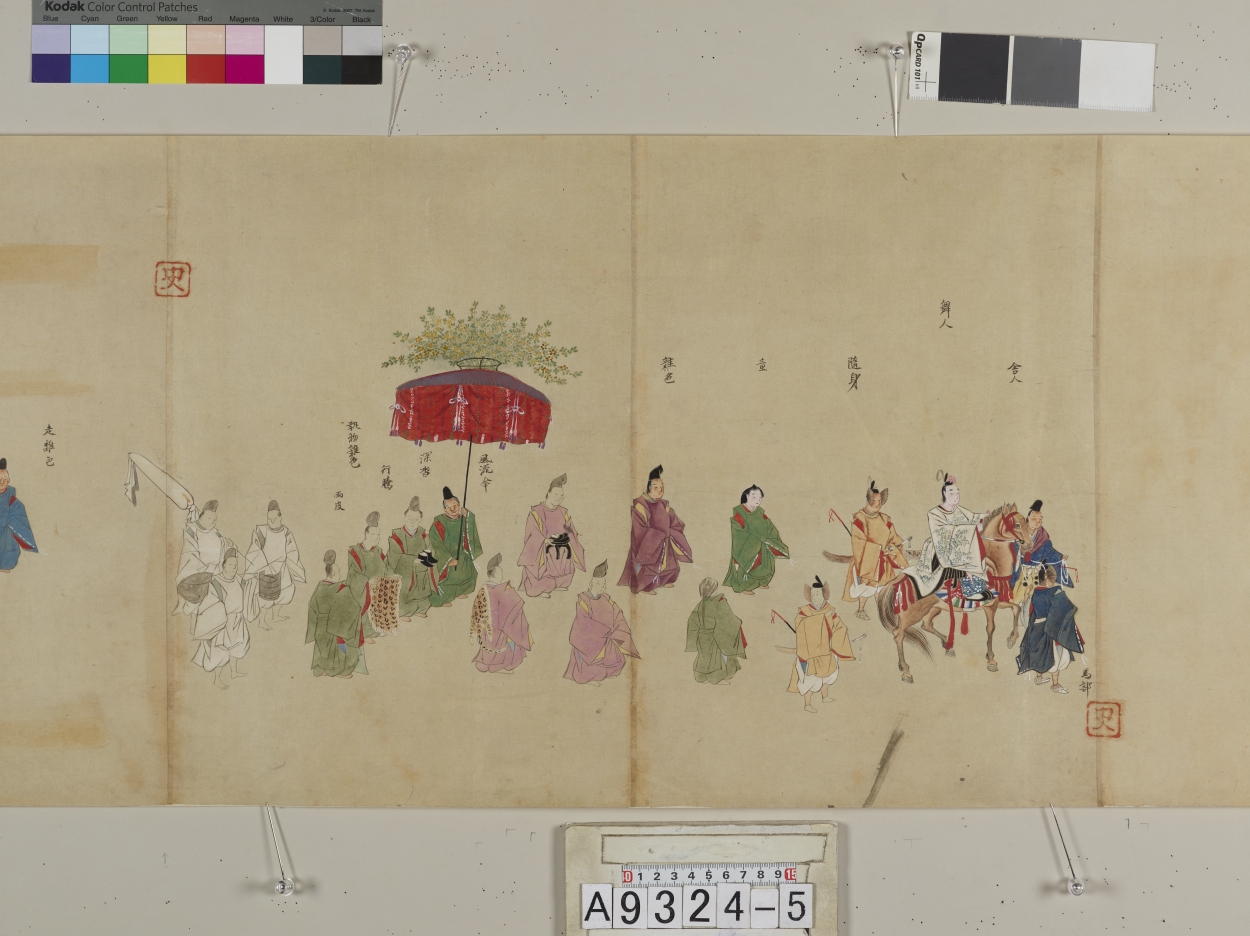 Kodak Color Control Patches
Blue Cyan Green Yellow Red Magenta White 3/Color Black
QPCARD 101
舎人
舞人
随身
童
雑色
馬部
風流傘
深沓
行騰
雨皮
執物雑色
走雑色
史
史
0 1 2 3 4 5 6 7 8 9 15
A9324-5